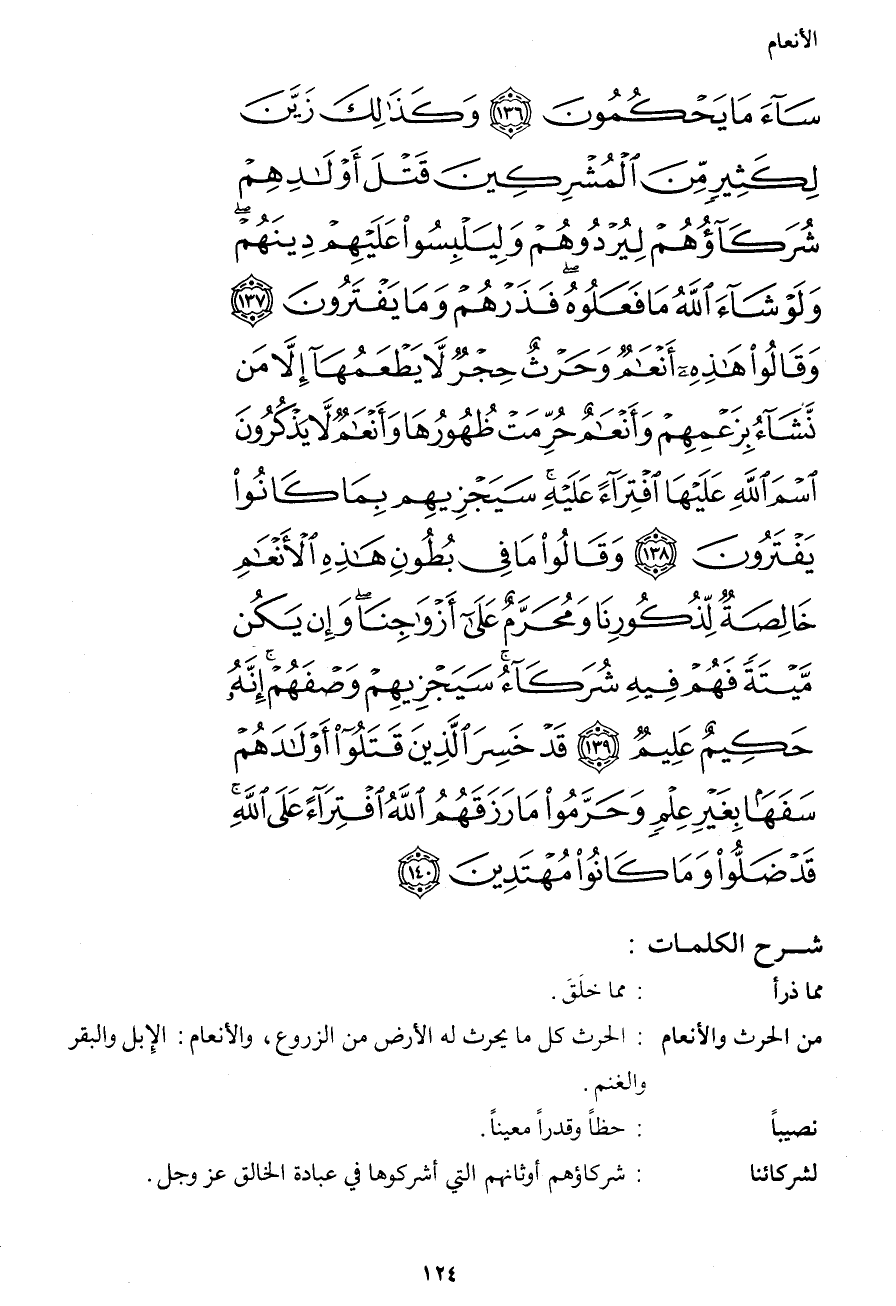 الأنعام
سَآءَ مَا يَحْكُمُونَ ﴿١٣٦﴾ وَكَذَٰلِكَ زَيَّنَ
لِكَثِيرٍ مِّنَ ٱلْمُشْرِكِينَ قَتْلَ أَوْلَٰدِهِمْ
شُرَكَآؤُهُمْ لِيُرْدُوهُمْ وَلِيَلْبِسُوا۟ عَلَيْهِمْ دِينَهُمْ ۖ
وَلَوْ شَآءَ ٱللَّهُ مَا فَعَلُوهُ ۖ فَذَرْهُمْ وَمَا يَفْتَرُونَ ﴿١٣٧﴾
وَقَالُوا۟ هَٰذِهِۦٓ أَنْعَٰمٌ وَحَرْثٌ حِجْرٌ لَّا يَطْعَمُهَآ إِلَّا مَن
نَّشَآءُ بِزَعْمِهِمْ وَأَنْعَٰمٌ حُرِّمَتْ ظُهُورُهَا وَأَنْعَٰمٌ لَّا يَذْكُرُونَ
ٱسْمَ ٱللَّهِ عَلَيْهَا ٱفْتِرَآءً عَلَيْهِ ۚ سَيَجْزِيهِم بِمَا كَانُوا۟
يَفْتَرُونَ ﴿١٣٨﴾ وَقَالُوا۟ مَا فِى بُطُونِ هَٰذِهِ ٱلْأَنْعَٰمِ
خَالِصَةٌ لِّذُكُورِنَا وَمُحَرَّمٌ عَلَىٰٓ أَزْوَٰجِنَا ۖ وَإِن يَكُن
مَّيْتَةً فَهُمْ فِيهِ شُرَكَآءُ ۚ سَيَجْزِيهِمْ وَصْفَهُمْ ۚ إِنَّهُۥ
حَكِيمٌ عَلِيمٌ ﴿١٣٩﴾ قَدْ خَسِرَ ٱلَّذِينَ قَتَلُوٓا۟ أَوْلَٰدَهُمْ
سَفَهًۢا بِغَيْرِ عِلْمٍ وَحَرَّمُوا۟ مَا رَزَقَهُمُ ٱللَّهُ ٱفْتِرَآءً عَلَى ٱللَّهِ ۚ
قَدْ ضَلُّوا۟ وَمَا كَانُوا۟ مُهْتَدِينَ ﴿١٤٠﴾
شـرح الكلمـات :
مما ذرأ : مما خلَقَ .
من الحرث والأنعام : الحرث كل ما يحرث له الأرض من الزروع، والأنعام : الإبل والبقر
والغنم .
نصيباً : حظاً وقدراً معيناً .
لشركائنا : شركاؤهم أوثانهم التي أشركوها في عبادة الخالق عز وجل .
١٢٤